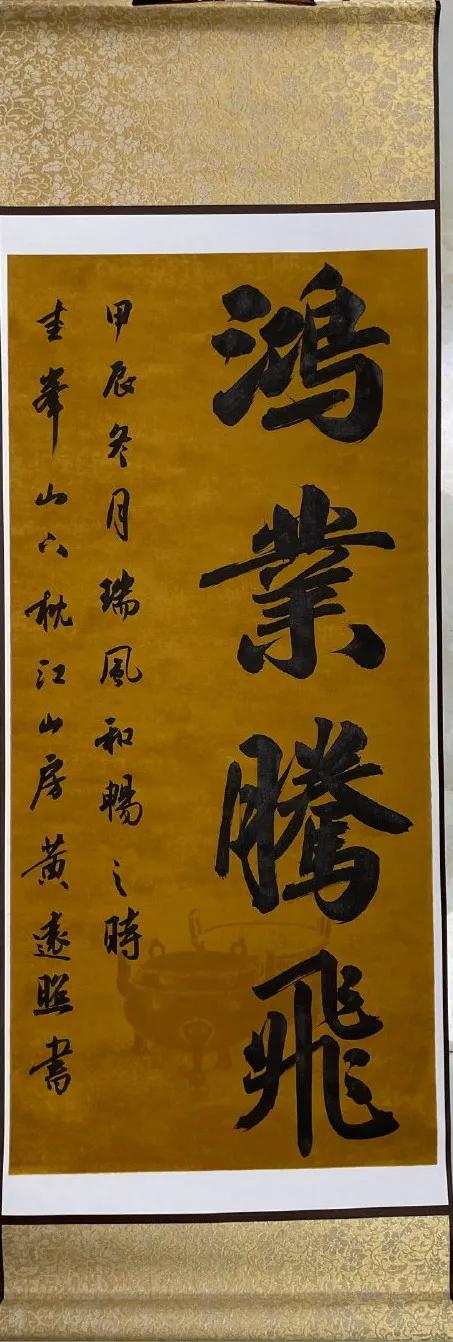 鴻業騰飛
甲辰冬月瑞風和暢之時
圭峯山下枕江山房黃遠照書